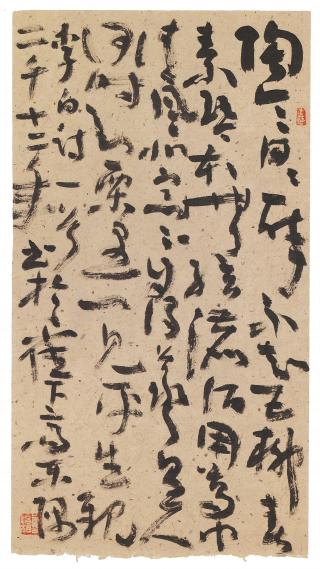 陶令日〻醉不知五柳春
素琴本無弦漉酒用葛巾
清風北窗下自謂羲皇人
何時到栗里一見平生親
李白詩一首
二千十二年書於下高東隅